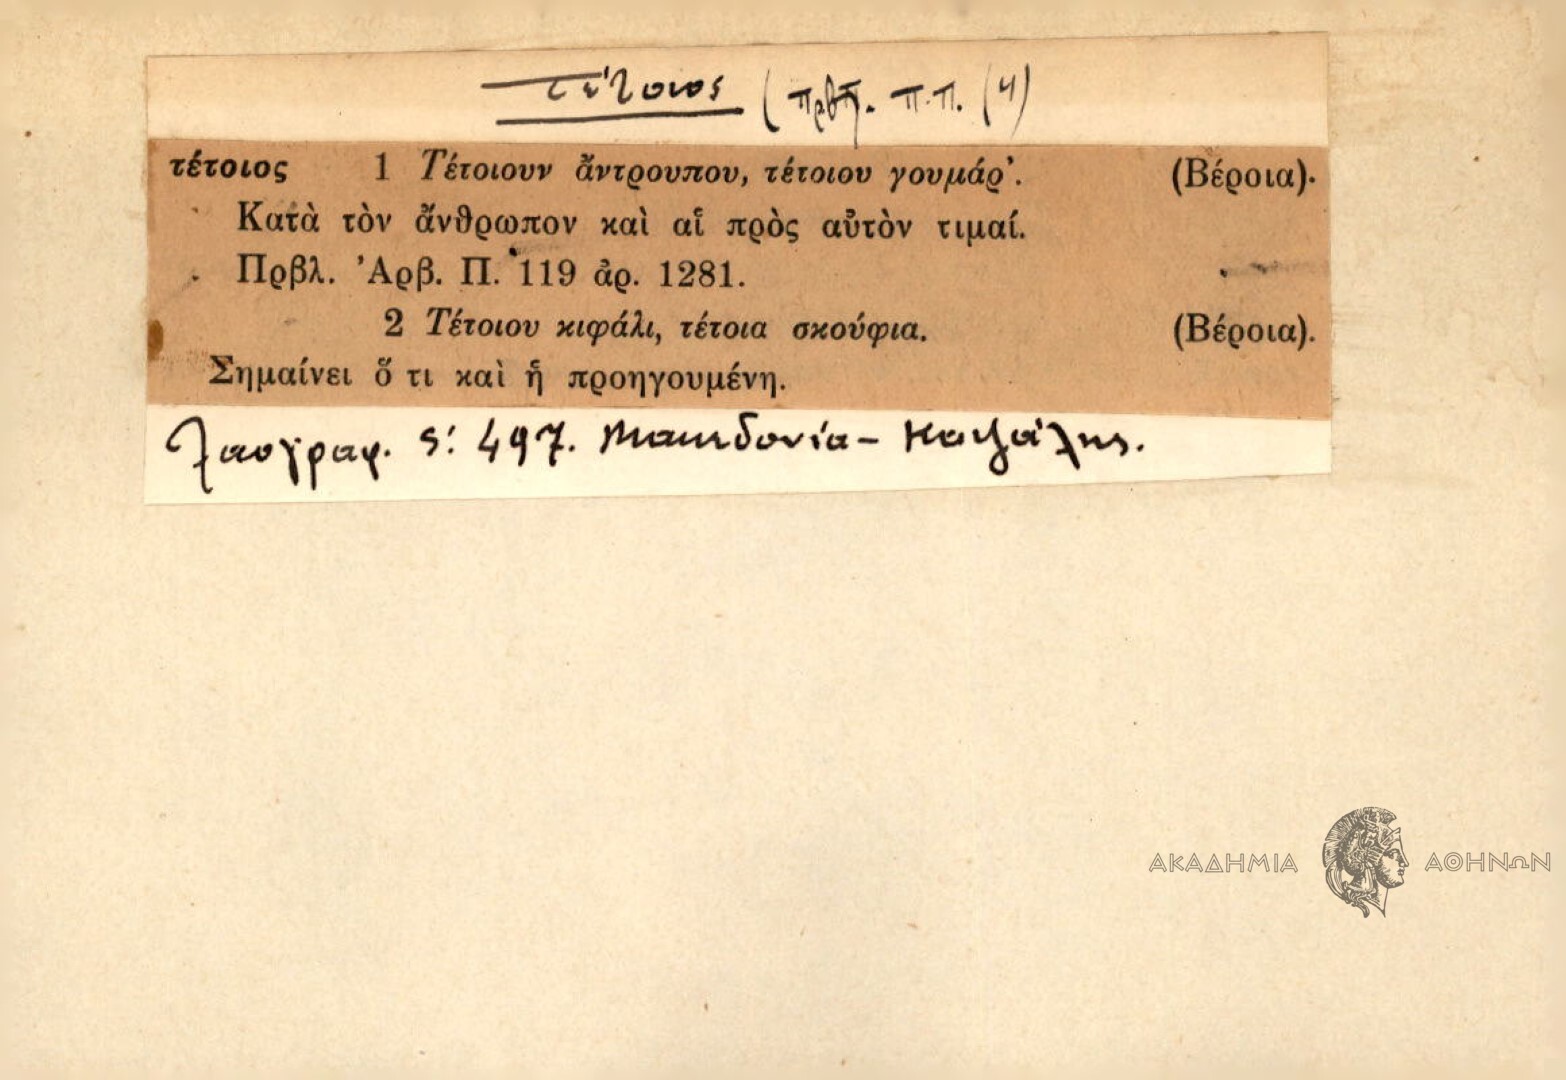 τέτοιος (πρβλ. π.π. (4)
τέτοιος 1 Τέτοιουν ἄντρουπου, τέτοιου γουμάρ’. (Βέροια).
Κατὰ τὸν ἄνθρωπον καὶ αἱ πρὸς αὐτὸν τιμαί.
Πρβλ. Ἀρβ. Π. 119 ἀρ. 1281.
2 Τέτοιου κιφάλι, τέτοια σκούφια. (Βέροια).
Σημαίνει ὅ τι καὶ ἡ προηγουμένη.
Λαογραφ. ς΄: 497. Μακεδονία –
ΑΚΑΔΗΜΙΑ ΑΘΗΝΩΝ